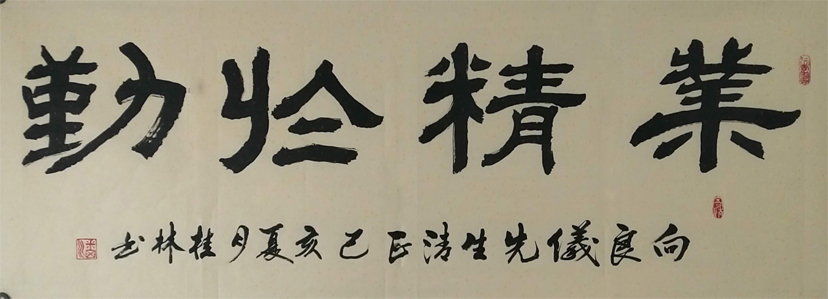 業精扵勤
向良儀先生清正己亥夏月桂林书